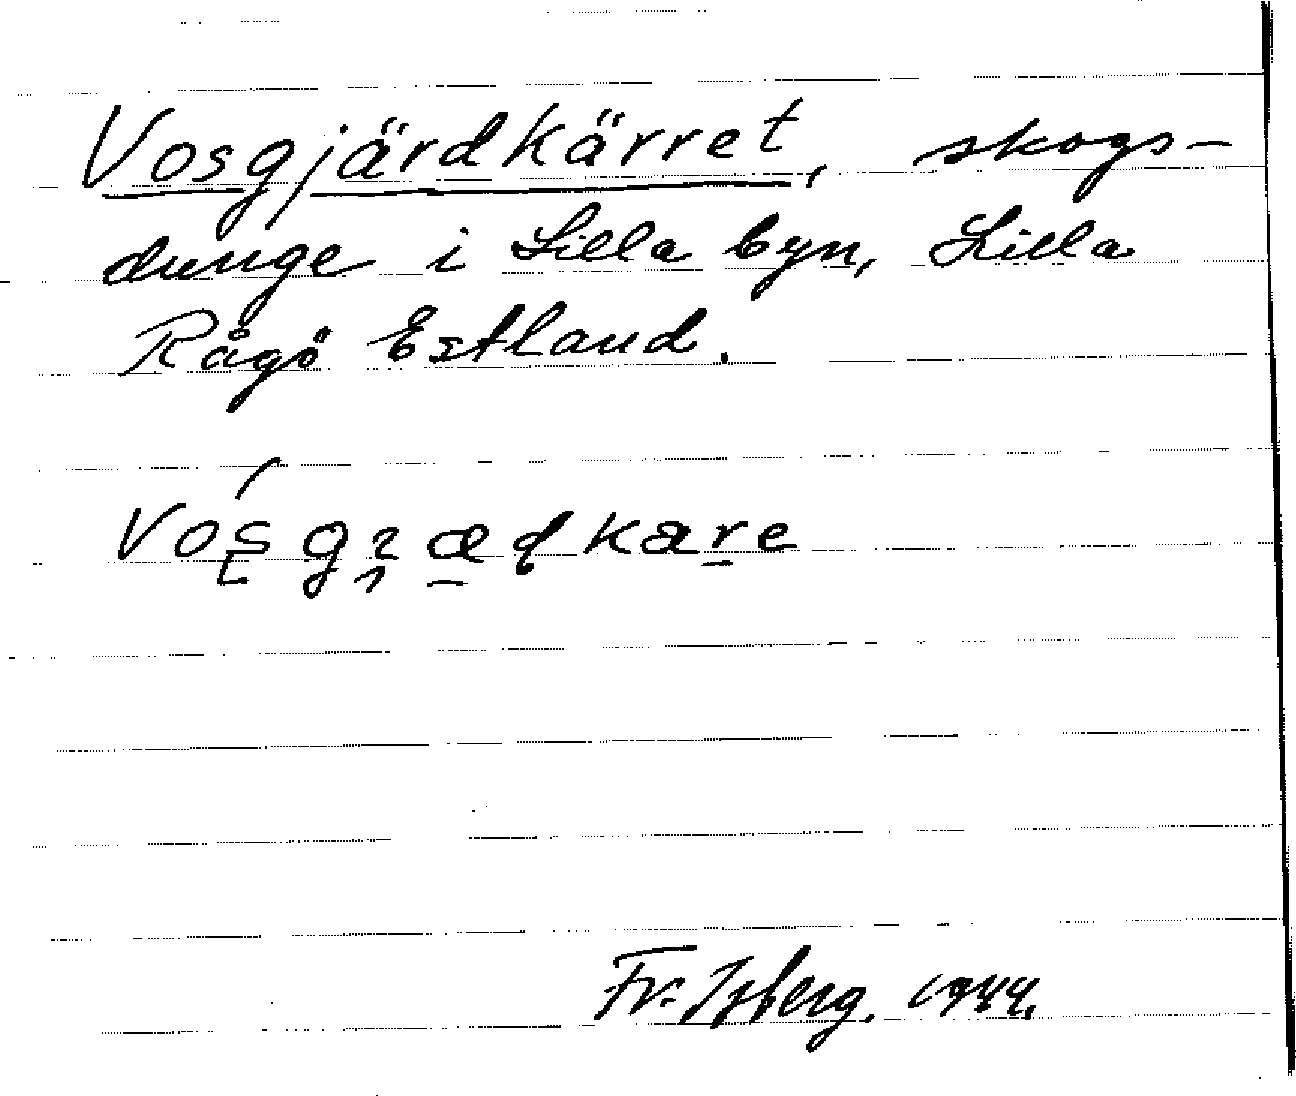 Vosgjärdkärret, skogs-
dunge i Lilla byn, Lilla
Rågö Estland.
Fr. Isberg. 1944.